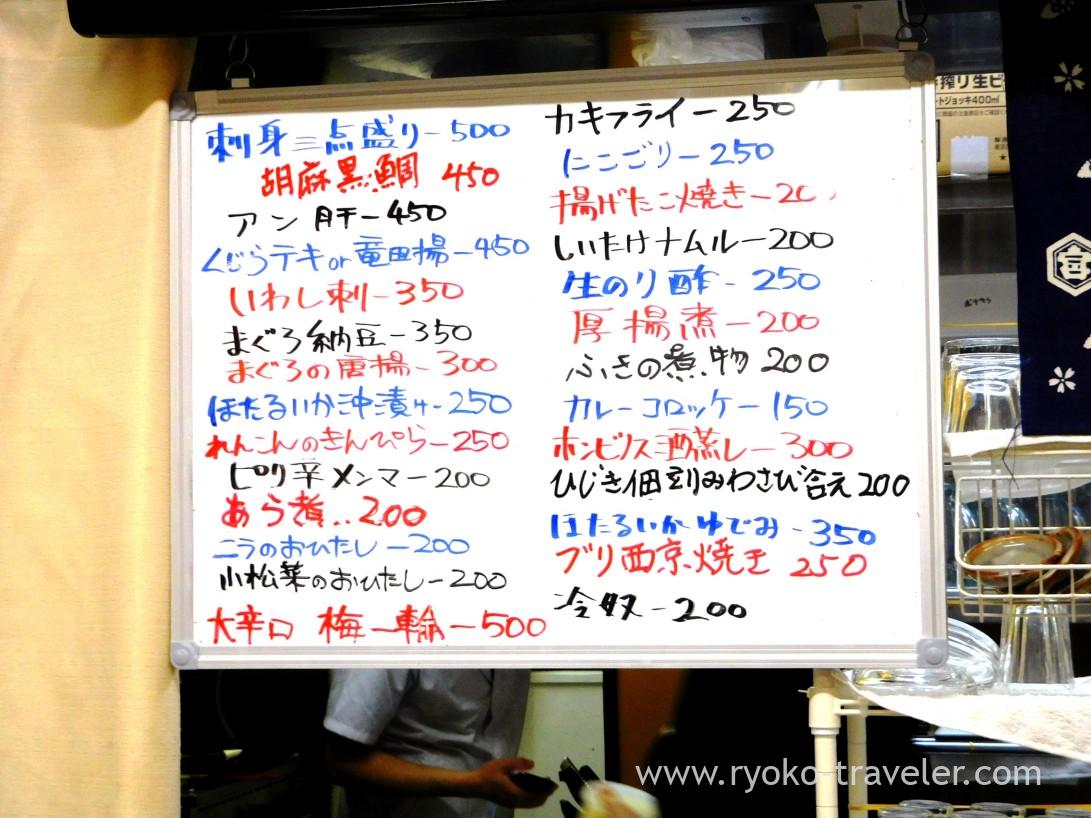 刺身三点盛り-500
胡麻黒鯛 450
アン肝-450
くじらテキor竜田揚-450
いわし刺-350
まぐろ納豆-350
まぐろの唐揚-300
ほたるいか沖漬け-250
れんこんのきんぴら-250
ピリ辛メンマー200
あら煮..200
ニラのおひたし-200
小松菜のおひたし-200
大辛口 梅一輪-500
カキフライ-250
にこごり-250
揚げたこ焼き-20
しいたけナムル-200
生のり酢-250
厚揚煮-200
ふきの煮物 200
カレーコロッケ-150
ホンビノス酒蒸し-300
ひじき佃刻みわさび合え 200
ほたるいかゆでみ-350
ブリ西京焼き 250
冷奴-200
搾り生ビ
トジョッキ400ml
www.ryoko-traveler.com